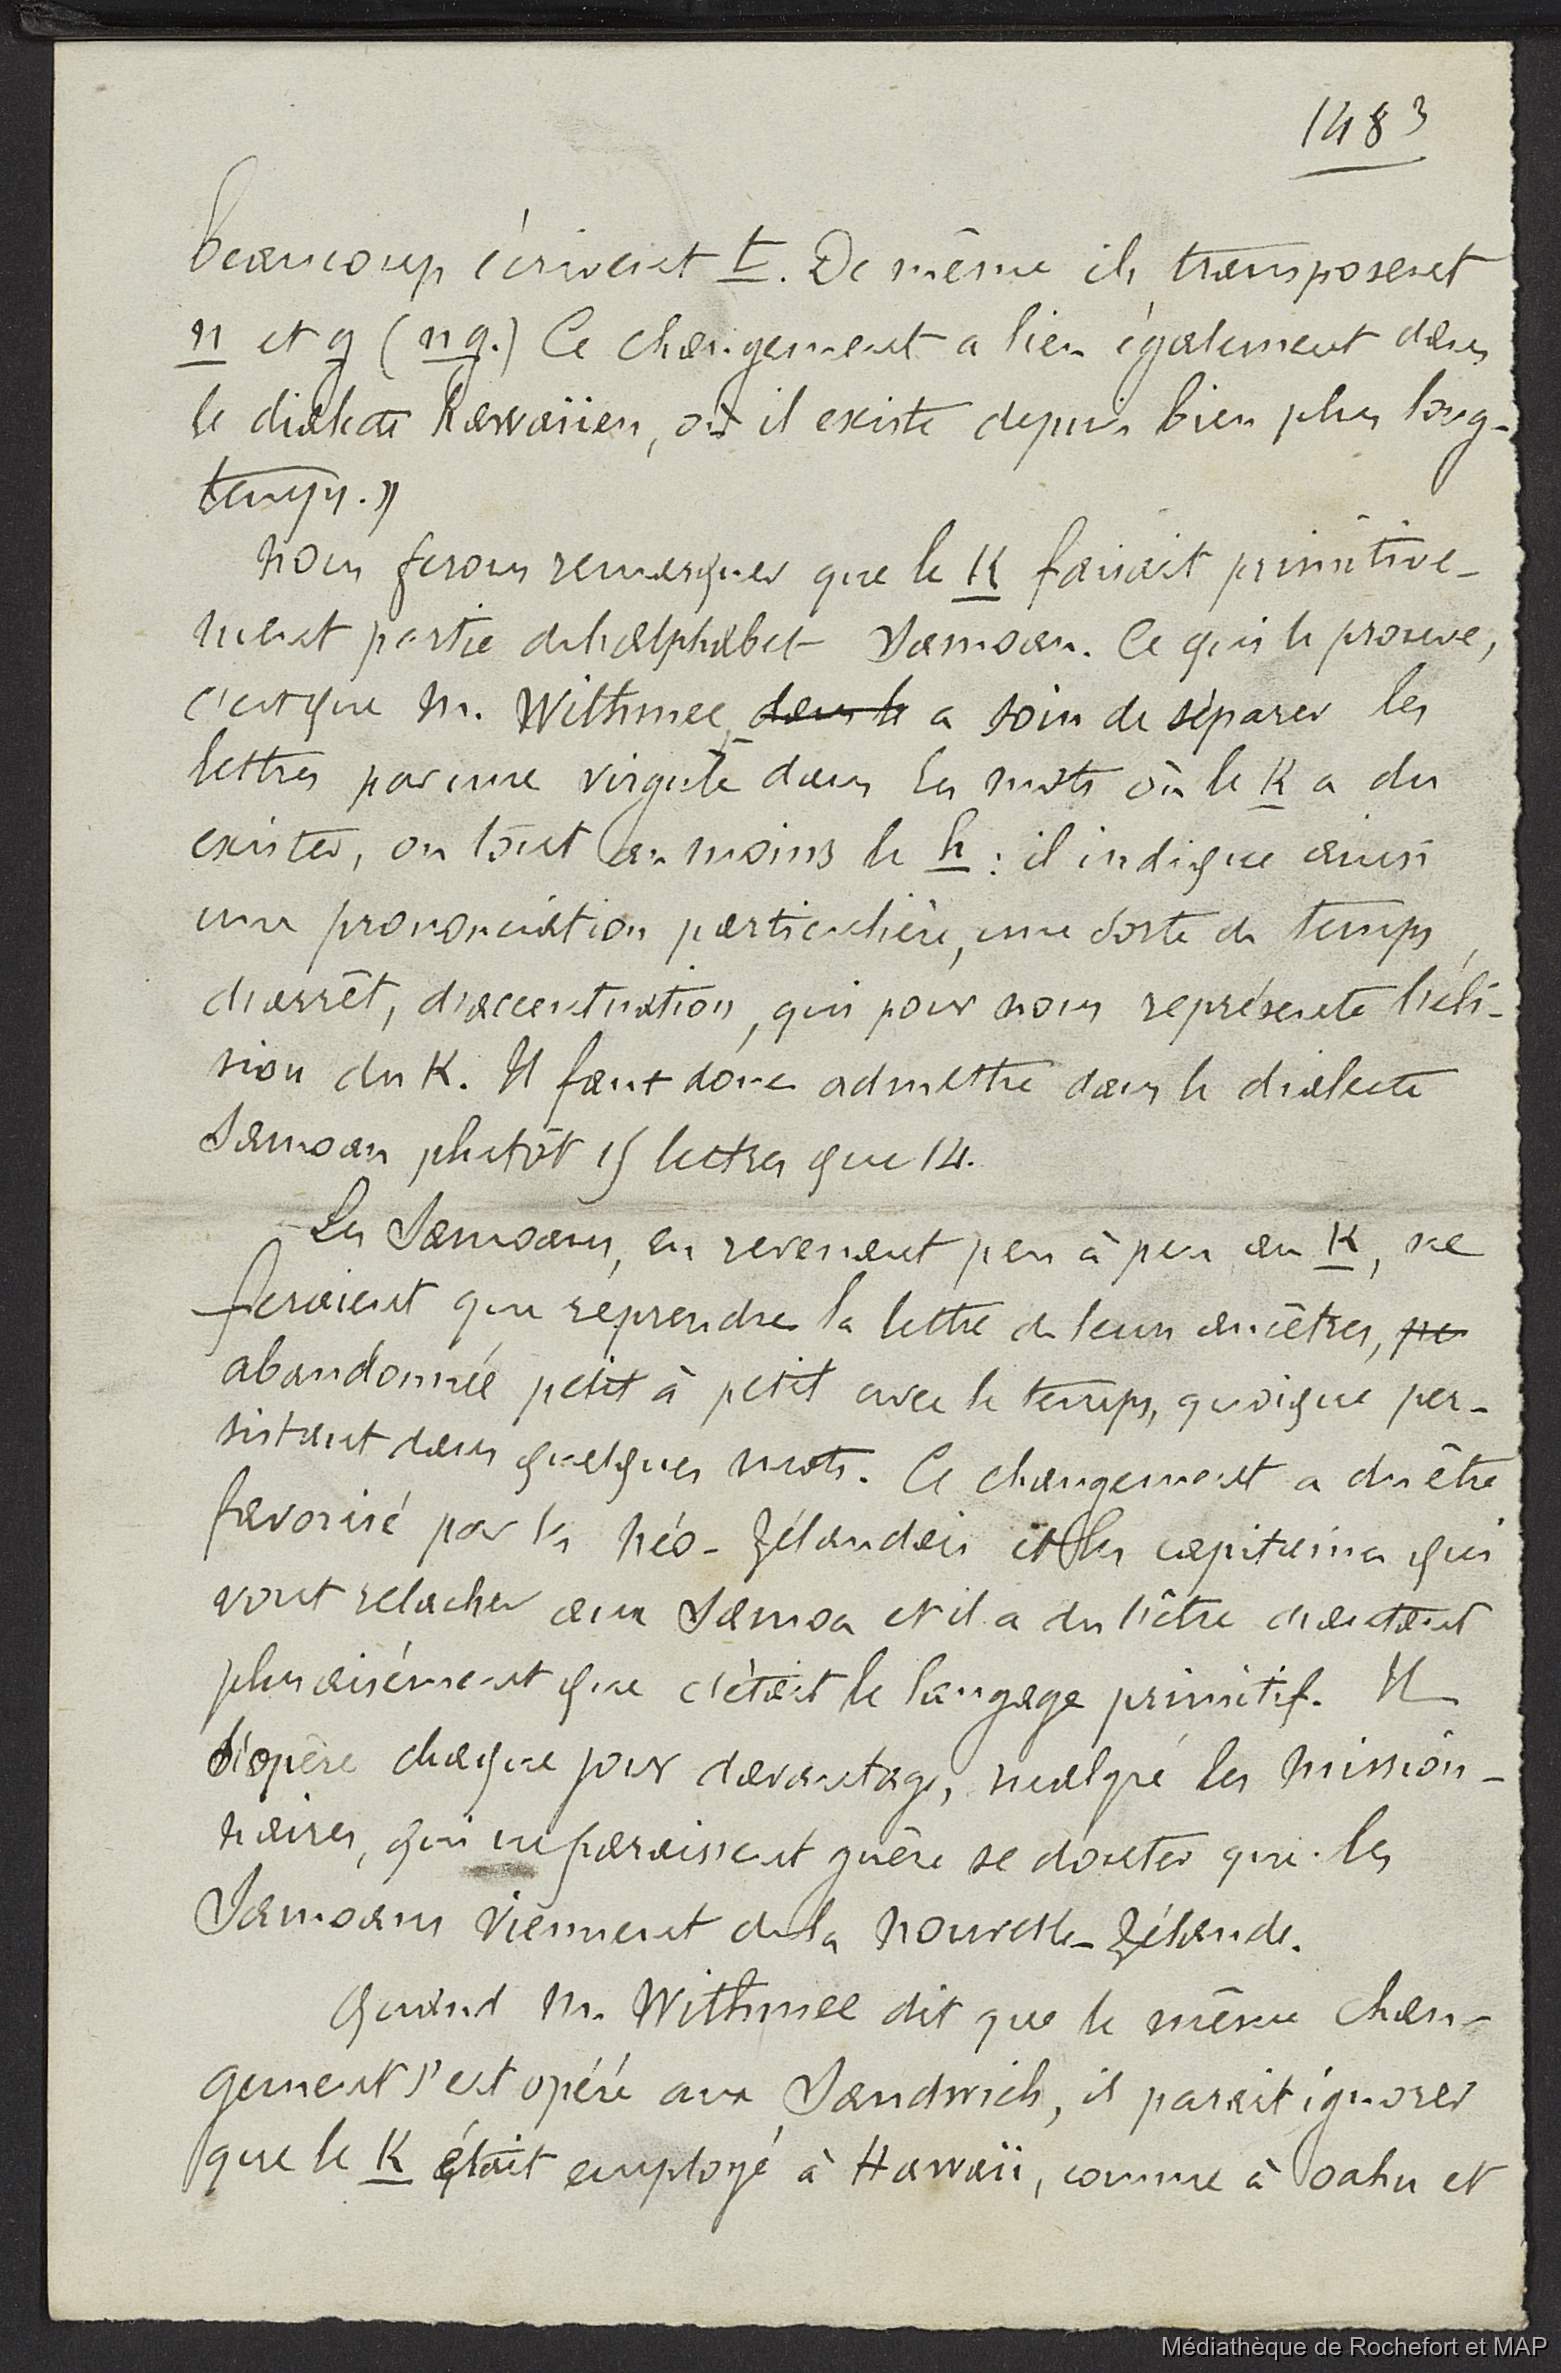 1483
beaucoup écrivent t. De même ils transposent
n et g (ng.) Ce changement a lieu également dans
le dialecte hawaiien, où il existe depuis bien plus long-
temps.»
Nous ferons remarquer que le K faisait primitive-
ment partie de l'alphabet Samoan. Ce qui le prouve,
c'est que M. Withmee dans le a soin de séparer les
lettres par une virgule dans les mots où le K a du
exister, ou tout au moins le h : il indique ainsi
une prononciation particulière, une sorte de temps
d'arrêt, d'accentuation, qui pour nous représente l'éli-
sion du K. Il faut donc admettre dans le dialecte
Samoan plutôt 15 lettres que 14.
Les Samoans, en revenant peu à peu au K, ne
feraient que reprendre la lettre de leurs ancêtres, pe
abandonnée petit à petit avec le temps, quoique per-
sistant dans quelques mots. Ce changement a du être
favorisé par les Néo-Zélandais et les capitaines qui
vont relacher aux Samoa et il a du l'être d'autant
plus aisément que c'était le langage primitif. Il
s'opère chaque jour davantage, malgré les mission-
naires, qui ne paraissent guère se douter que les
Samoans viennent de la Nouvelle-Zélande.
Quand M. Withmee dit que le même chan-
gement s'est opéré aux Sandwich, il parait ignorer
que le K était employé à Hawaii, comme à Oahu et
Médiathèque de Rochefort et MAP